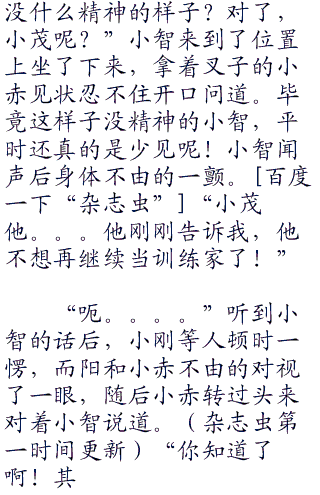 没什么精神的样子？对了，
小茂呢？”小智来到了位置
上坐了下来，拿着叉子的小
赤见状忍不住开口问道。毕
竟这样子没精神的小智，平
时还真的是少见呢！小智闻
声后身体不由的一颤。[百度
一下“杂志虫”]“小茂
他。。。他刚刚告诉我，他
不想再继续当训练家了！”
“呃。。。。”听到小
智的话后，小刚等人顿时一
愣，而阳和小赤不由的对视
了一眼，随后小赤转过头来
对着小智说道。（杂志虫第
一时间更新）“你知道了
啊！其